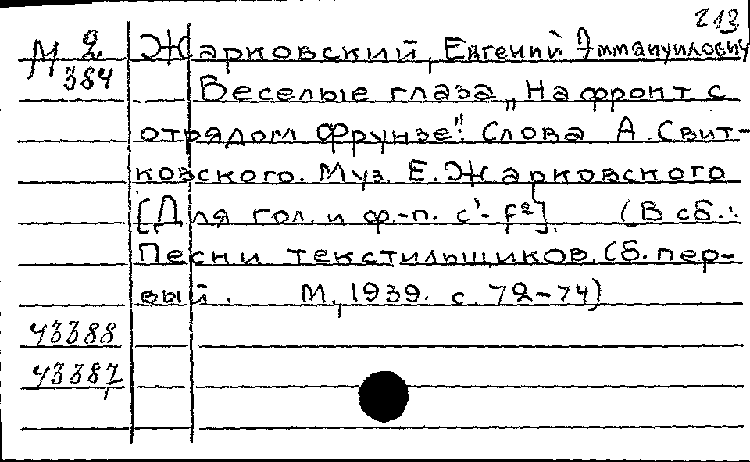 213
М 2 Жарковский, Евгений Эммануилович
384 Веселые глаза „На фронт с
отрядом Фрунзе". Слова А. Свит-
ковского. Муз. Е. Жарковского
[Для гол. и ф.-п. c¹- f²] (В сб.:
Песни текстильщиков. Сб. пер-
вый. М, 1939. с. 72-74)
43388
43387